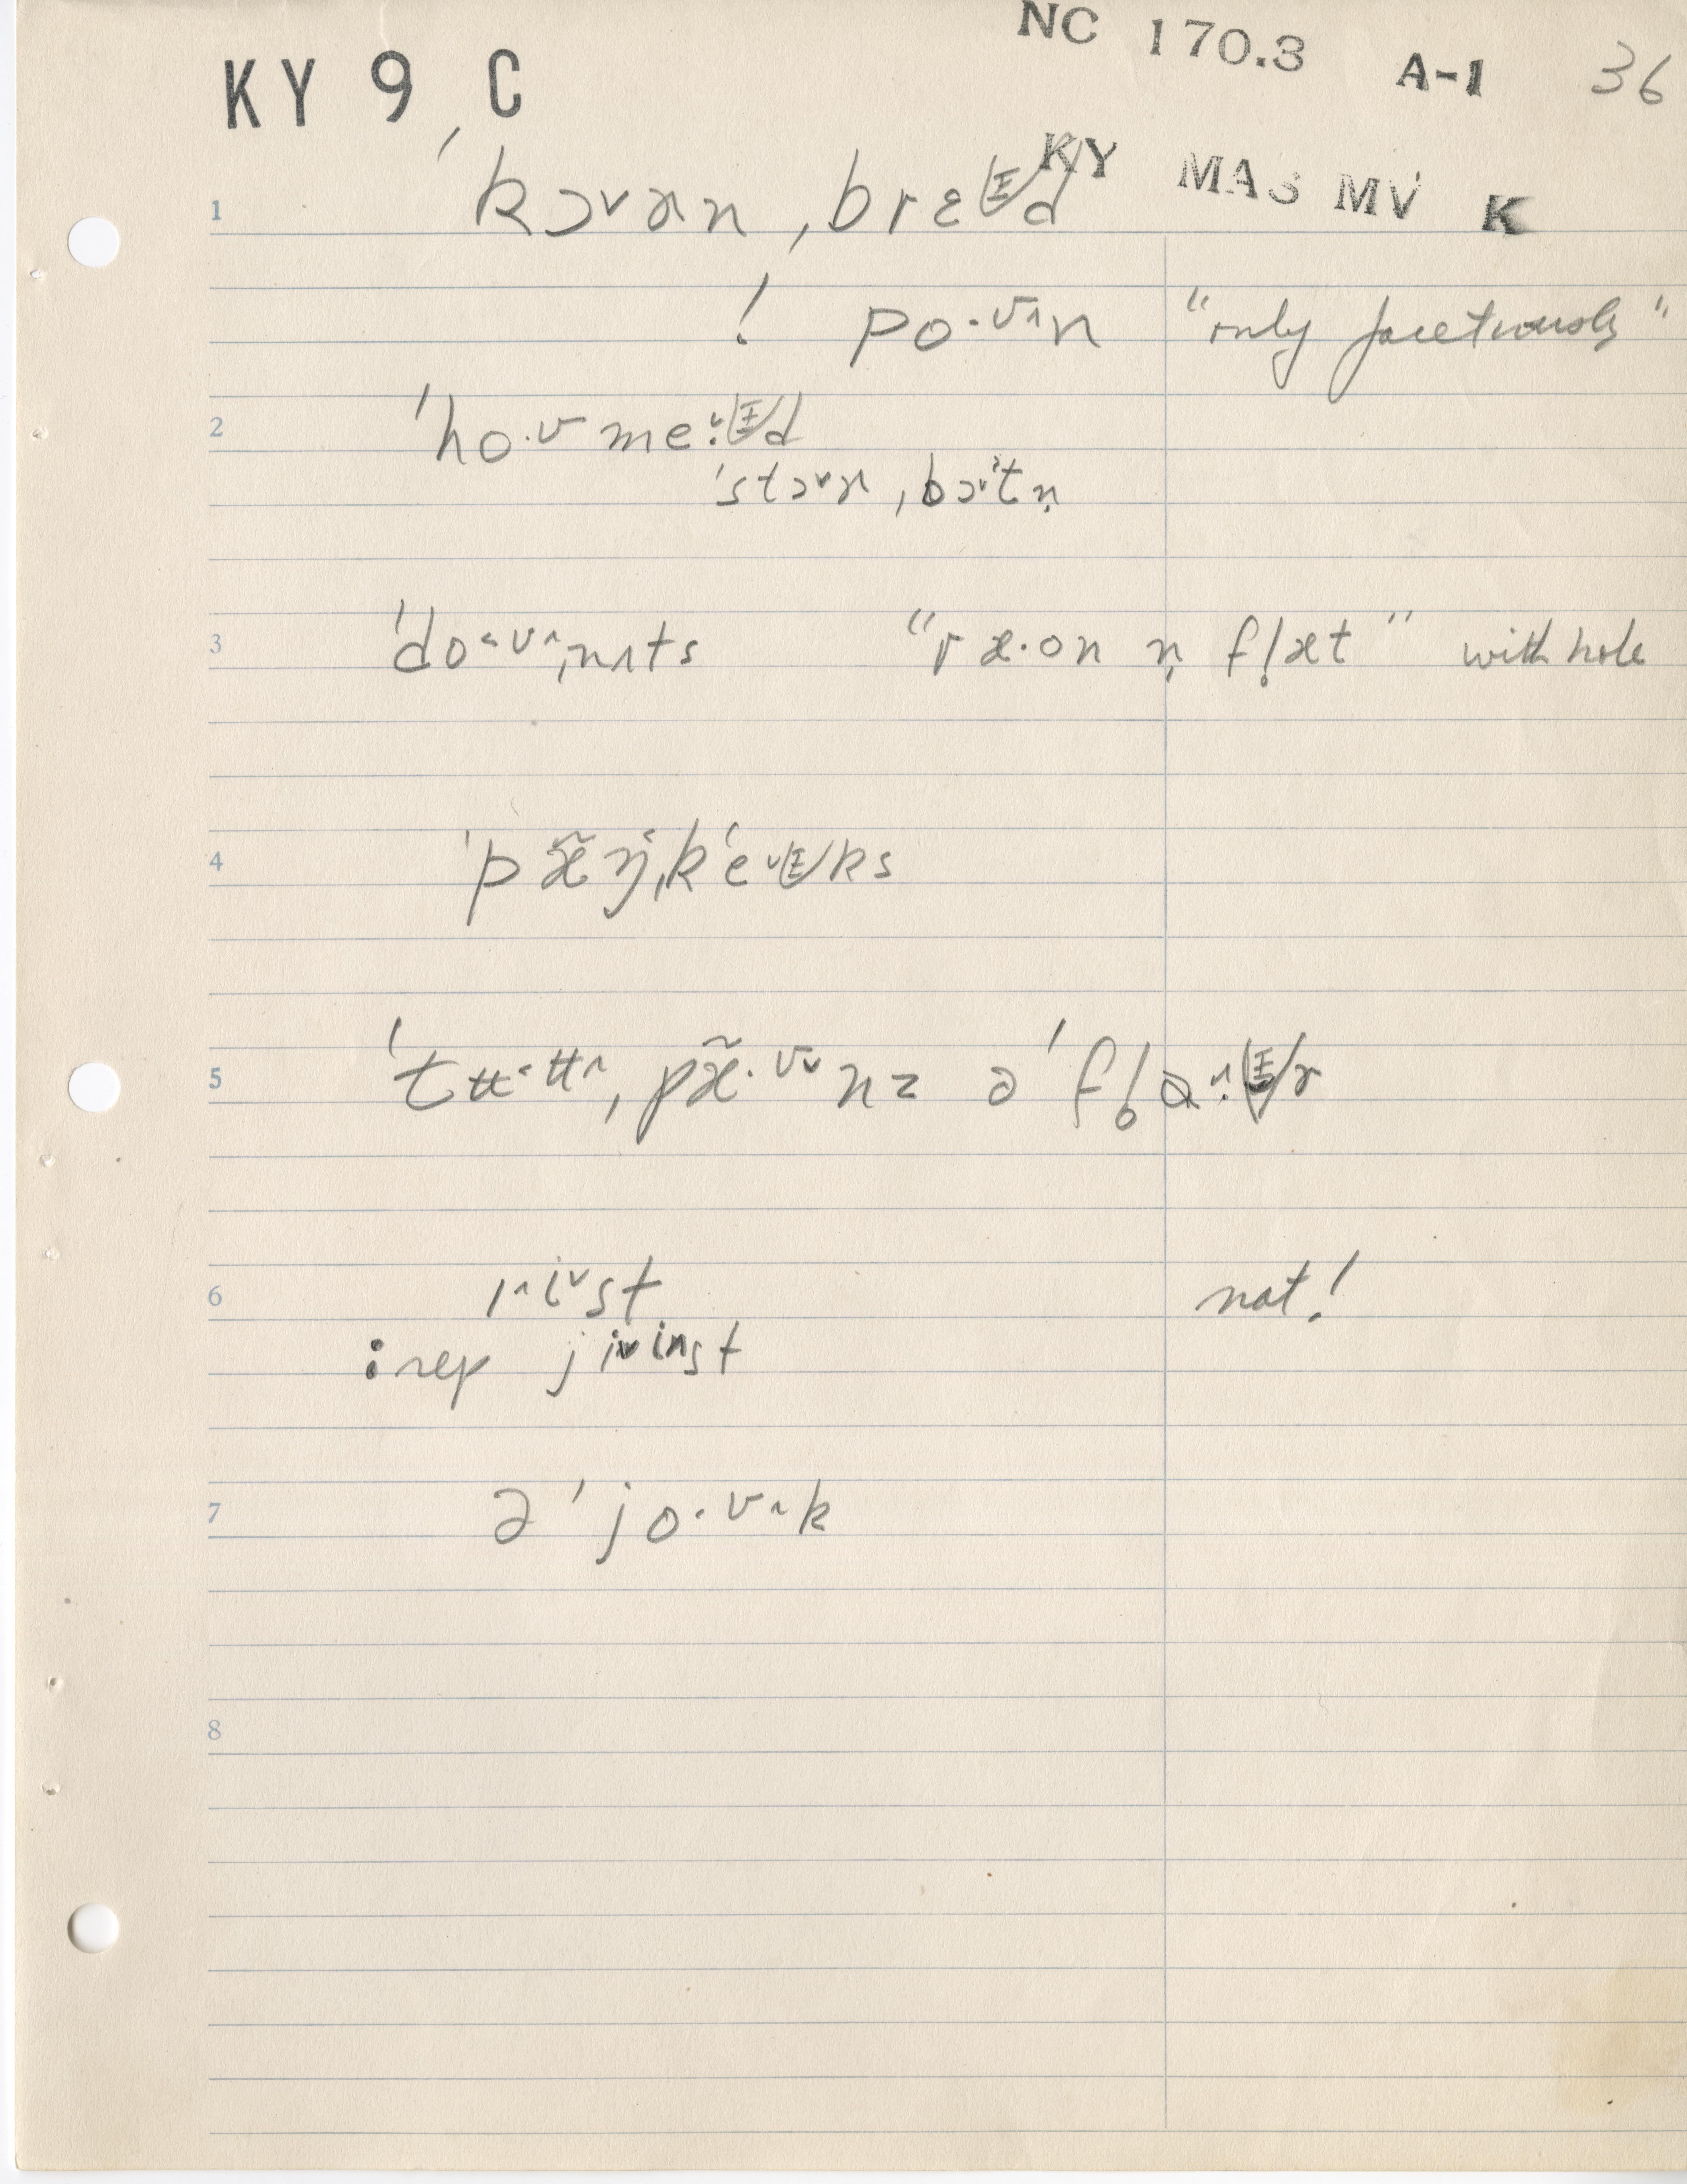 NC 170.3 A-1 36
KY 9 C
KY MAS MV K
1 ˈkɔ˅ɚn ˌbrɛᴵd
! po·ʊ^n "only facetiously"
2 ˈho·ʊ me:ᴵd
ˈstɔ˅ɚ ˌbɔ˅tn̩
3 ˈdo·ʊ^ˌnʌts "ræ·on n̩ fl̥æt" with hole
4 ˈpæ̃ŋˌkʻeᴵks
5 ˈtʉ·ʉ^ ˌpæ̃·ʊ˅nz ə ˈfl̥ɑ·ᴵr
6 ɪ^i˅st not!
: rep ji˅inst
7 ə ˈjo·ʊ^k
8